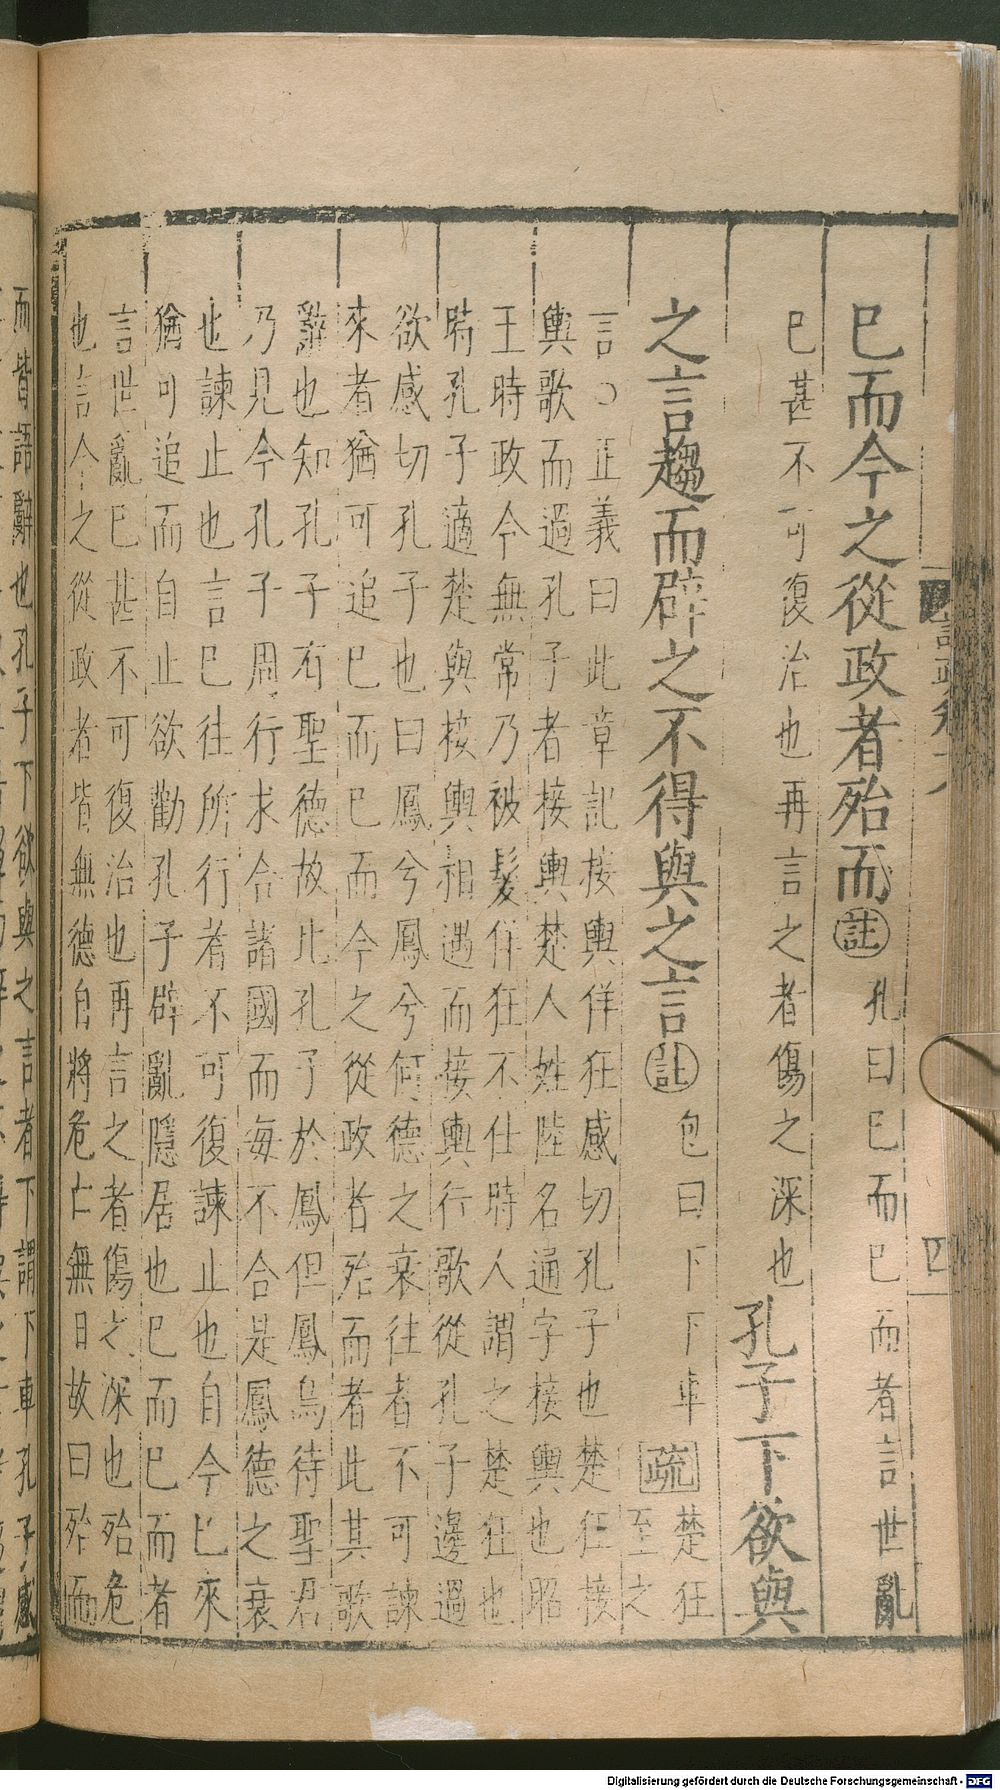 巳而今之從政者殆而
註
孔曰巳而巳而者言世亂
巳甚不可復治也再言之者傷之深也
孔子下欲與
之言趨而辟之不得與之言
註
包曰下下車
疏
楚狂
至之
言○正義曰此章記接輿佯狂感切孔子也楚狂接
輿歌而過孔子者接輿楚人姓陸名通字接輿也昭
王時政令無常乃被髮佯狂不仕時人謂之楚狂也
時孔子適楚與接輿相遇而接輿行歌從孔子邊過
欲感切孔子也曰鳳兮鳳兮何德之衰往者不可諫
來者猶可追巳而巳而今之從政者殆而者此其歌
辭也知孔子有聖德故比孔子於鳳但鳳鳥待聖君
乃見今孔子周行求合諸國而每不合是鳳德之衰
也諫止也言巳往所行者不可復諫止也自今巳來
猶可追而自止欲勸孔子辟亂隱居也巳而巳而者
言世亂巳甚不可復治也再言之者傷之深也殆危
也言今之從政者皆無德自將危亡無日故曰殆而
而皆語辭也孔子下欲與之言者下謂下車孔子感
Digitalisierung gefördert durch die Deutsche Forschungsgemeinschaft - DFG